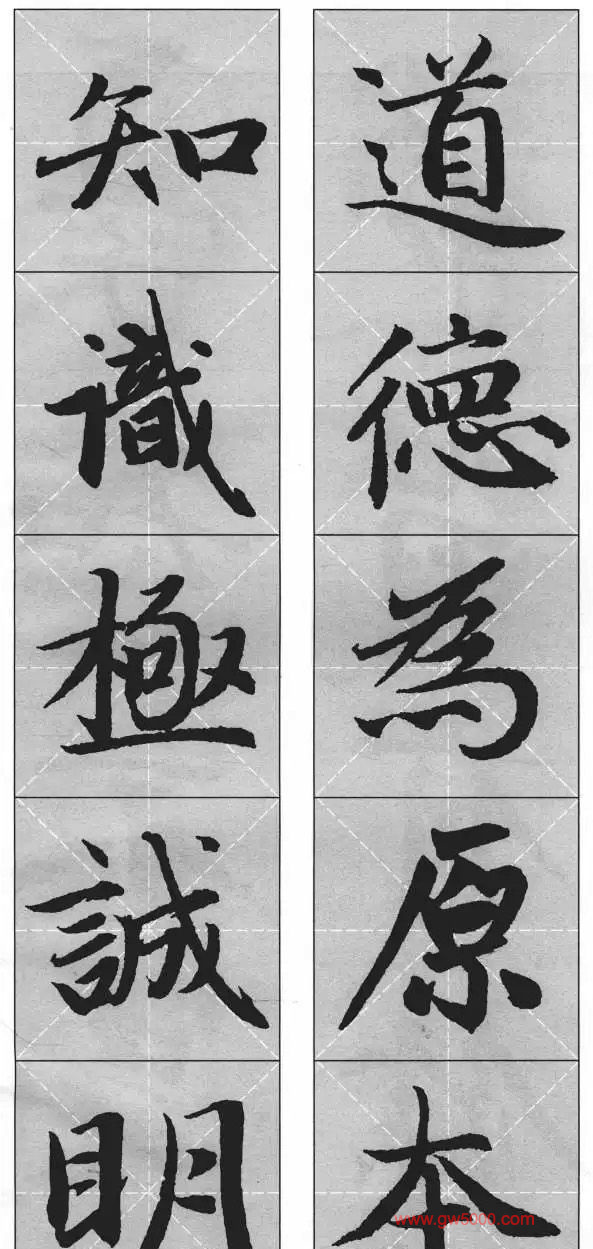 道德為原本
知識極誠明
www.gw5000.com